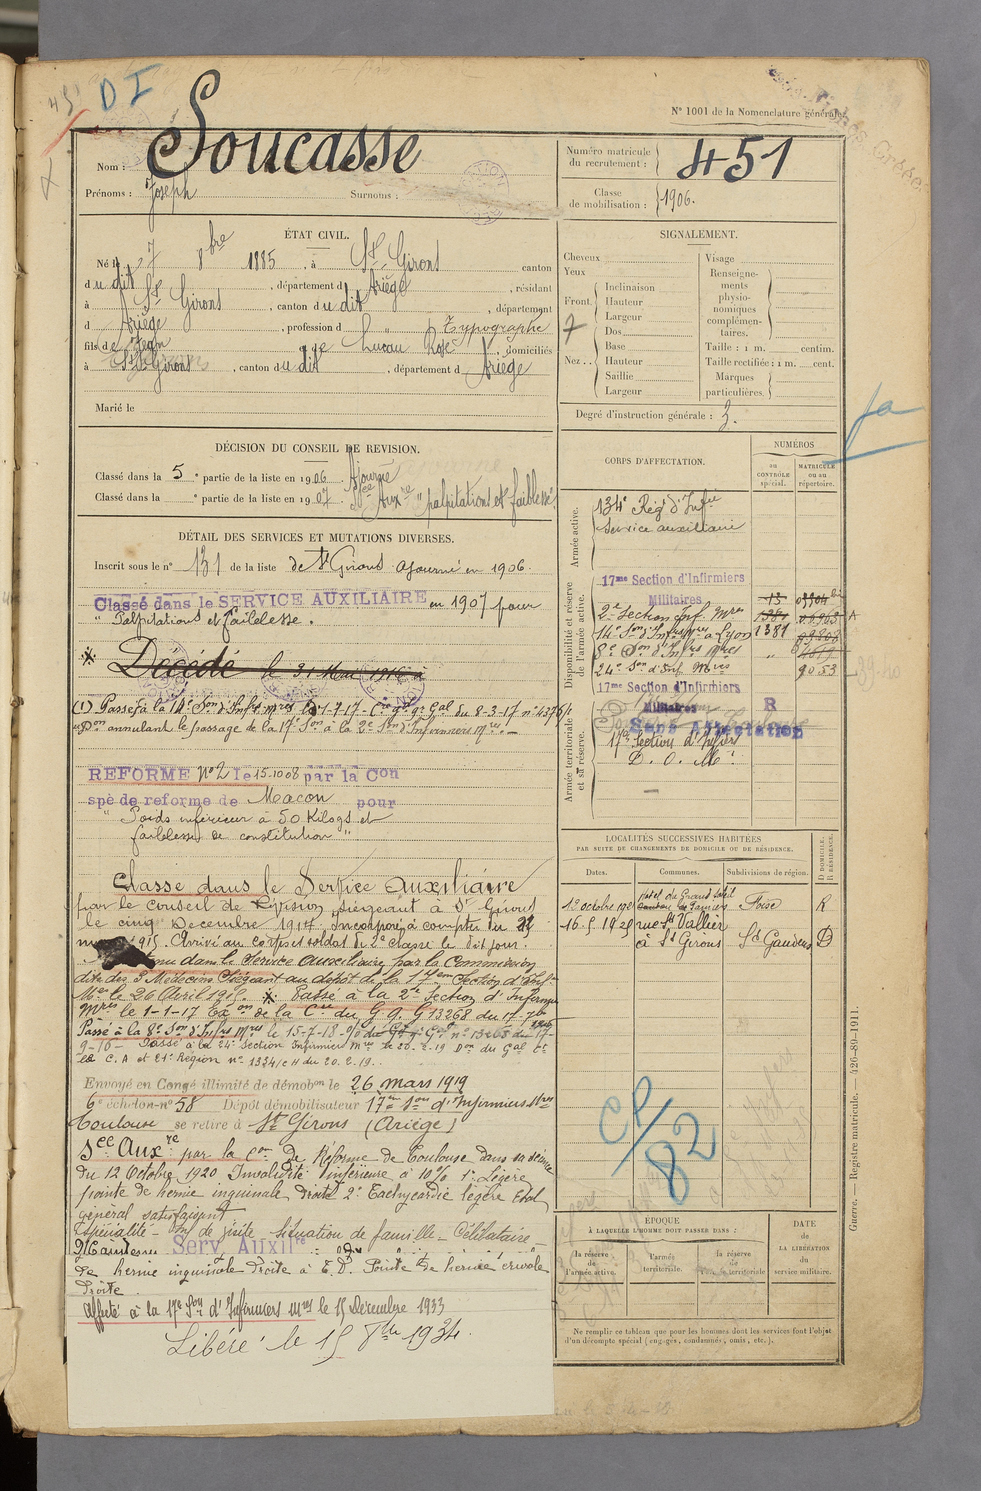 D I
N° 1001 de la Nomenclature générale.
Nom : Soucasse
Prénoms : Joseph Surnoms :
Numéro matricule du recrutement : 451
Classe de mobilisation : 1906.
ÉTAT CIVIL.
Né le 7 8bre 1885, à St Girons canton
du dit, département d Ariège, résidant
à St Girons, canton du dit, département
d Ariège, profession d Typographe
fils de Jean et de Lucau Rose, domiciliés
à St Girons, canton du dit, département d Ariège
Marié le
SIGNALEMENT.
Cheveux
Yeux
Front.
Inclinaison
Hauteur
Largeur
Nez..
Dos
Base
Hauteur
Saillie
Largeur
Visage
Renseignements physionomiques complémentaires.
Taille : 1 m. centim.
Taille rectifiée : 1 m. cent.
Marques particulières.
Degré d'instruction générale : 3.
DÉCISION DU CONSEIL DE REVISION.
Classé dans la 5e partie de la liste en 1906 Ajourné
Classé dans la e partie de la liste en 1907 Sce Auxre "palpitations et faiblesse"
DÉTAIL DES SERVICES ET MUTATIONS DIVERSES.
Inscrit sous le n° 131 de la liste de St Girons ajourné en 1906.
Classé dans le SERVICE AUXILIAIRE en 1907 pour
" Palpitations et faiblesse.
Décédé le 31 Mai 1916 à
(1) Passé à la 14e Son d'Infrs Mres le 1-7-17 Cre Gal du 8-3-17 n° 4376/1
annulant le passage de la 17e Son à la 2e Son d'Infirmiers Mres. –
REFORME N° 2 le 15-10-08 par la Con
spé de reforme de Macon pour
" Poids inférieur à 50 Kilogs et
faiblesse de constitution "
Classé dans le Service auxiliaire
par le conseil de Révision siégeant à St Girons
le cinq Décembre 1914. Incorporé à compter du 22
1915. Arrivé au corps et soldat de 2e classe le dit jour.
dans le service auxiliaire par la Commission
dite des 3 Médecins siégeant au dépôt de la 17em Section d'Inf.
Mres le 26 Avril 1915. Passé à la 2e Section d'Infirmiers
Mres le 1-1-17 Ex on de la Cre du G. Q. G 13268 du 17-
Passé à la 8e Son d'Infrs Mres le 15-7-18
9-16- Passé à la 24e Section Infirmiers Mres le 20-2-19 Don du Gal Ct
la C. A et 21e Region n° 1334/cH du 20.2.19.
Envoyé en Congé illimité de démobon le 26 mars 1919
6e échelon-n° 58 Dépôt démobilisateur 17e Son d'Infirmiers Mres
Toulouse se retire à St Girons (Ariège)
Sce Auxre par la Con de Réforme de Toulouse dans sa séance
du 12 Octobre 1920 Invalidité inférieure à 10% 1° Légère
pointe de hernie inguinale droite 2° Tachycardie légère Etat
général satisfaisant
Spécialité – de visite – Situation de famille – Célibataire –
Maintenu Serv. Auxilre
de hernie inguinale droite à E. D. Pointe de hernie crurale
droite
Affecté à la 17e Son d'Infirmiers Mres le 15 Décembre 1933
Libéré le 15 8bre 1934.
CORPS D'AFFECTATION.
NUMÉROS
au CONTRÔLE spécial.
MATRICULE ou au répertoire.
fa
Armée active.
134e Régt d'Infie
Service auxiliaire
Disponibilité et réserve de l'armée active.
17me Section d'Infirmiers
Militaires
2e Section Inf. Mres
14e Son d'Infrs Mres à Lyon 1381
8e Son d'Infrs Mres "
24e Son d'Inf. Mres 9053
Armée territoriale et sa réserve.
17me Section d'Infirmiers
Militaires R
Sans Affectation
17e Section d'Infirs
D. O. Mre
LOCALITÉS SUCCESSIVES HABITÉES
PAR SUITE DE CHANGEMENTS DE DOMICILE OU DE RÉSIDENCE.
Dates. Communes. Subdivisions de région. D DOMICILE. R RÉSIDENCE.
Hotel du Grand Soleil
Pamiers Foix R
16.5.1925 rue St Vallier
à St Girons St Gaudens D
CP/82
ÉPOQUE
À LAQUELLE L'HOMME DOIT PASSER DANS :
la réserve de l'armée active.
l'armée territoriale.
la réserve de l'armée territoriale
DATE DE LA LIBÉRATION du service militaire.
Ne remplir ce tableau que pour les hommes dont les services font l'objet
d'un décompte spécial (engagés, condamnés, omis, etc.).
Guerre. — Registre matricule. — 426-89-1911.